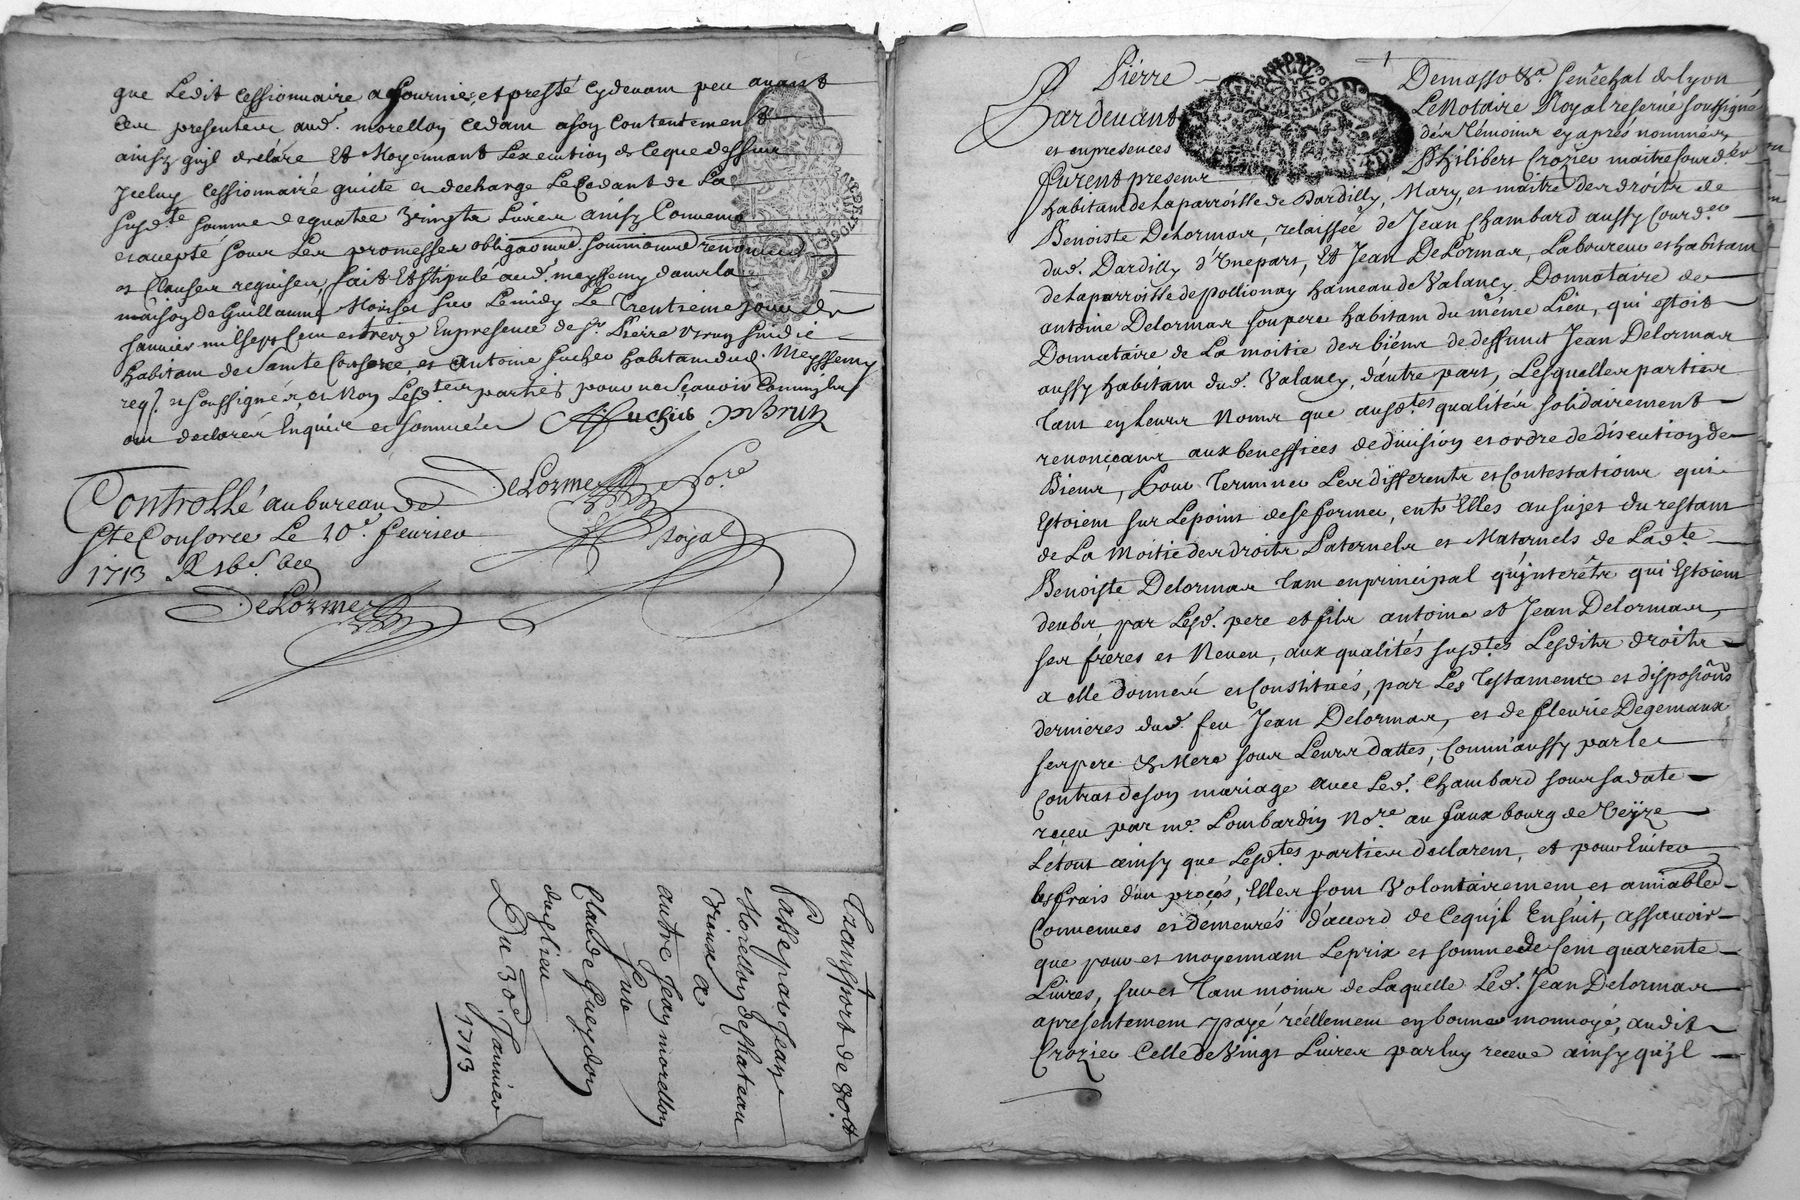 que Ledit cessionnaire a fournie, et presté cydevam peu avant
Cer presenter aud. morellon cedam a son Contentement
ainsy qu'jl declare Et Moyennant Lexecution de Ceque dessus
Jceluy cessionnairé quicte et decharge Le Cedant de La
susd.te somme de quatre Vringtr Livrer ainsy Convenue
et accepté sour Ler promesser obligaōns. soumionr renoncieō
et Clauser requiser, fait Et stipulé aud. meysseny danr la
maison de Guillaume Sur Le midy Le Trentieme jour de
Januier mil sept Cem et treize En presence de sr. Pierre Vrun sindic
habitam de Sainte Consorce, et Antoine fucher habitam dud. Meysseny
req. et soussignér, et Non Lesd.ter partiér pour ne sçauoir Comm'jler
om declarér Enquir et sommeér Afuchér P Brun
DeLorme No.re
Royal
Controllé au bureau de
Ste Consorce Le 10e feurier
1713
DeLorme
Transport de 80 lt
Passe par Jean
Morellon de Chateau
Vieux a
autre Jean morellon
Sur
Claude Gueydon
dudt lieu
Du 30e. Januier
1713
Pierre Demasso &a Senechal de Lyon
Pardeuant Le Notaire Royal reserué soussigné
et en presences der Témoinr cy aprés nommér
furent presenr Philibert Crozier maitre Courd.er
habitam de La parroisse de Dardilly, Mary, et maitre der droitr de
Benoiste Delormar, relaissée de Jean Chambard aussy Courd.er
dud. Dardilly d'Vnepart, Et Jean DeLormar, Laboureur et habitam
de La parroisse de Pollionay hameau de Valancy Donnataire de
antoine Delormar son pere habitam du même Lieu, qui estoit
Donnataire de La moitie der biénr de deffunct Jean Delormar
aussy habitam dud. Valancy, d'autre part, Lesqueller partier
tam en leurr Nomr que ausd.tes qualitér solidairement
renonçeanr aux beneffices de diuision et ordre de discution de
Bienr, Pour Terminer Ler differentr et Contestationr qui
Estoiem sur Le point de se former, entr'Elles au sujet du restam
de La Moitie der droitr Paternelr et Maternels de Lad.te
Benoiste Delormar tam en principal qu'jnterêtr qui Estoiem
deubr par Lesd. pere et filr antoine et Jean Delormar,
ser fréres et Neueu, aux qualités susd.tes Lesditr droitr
a elle donnér et Constitués, par Les Testamenr et disposiōns
dernieres dud. feu Jean Delormar, et de fleurie Degemaux
ser pere & Mere sour Leurr dattes, Comm'aussy par Le
Contrat de son mariage auec Led. Chambard sour sa date
receu par me. Lombardin No.re au faux bourg de Veÿze
Le tout ainsy que Lesd.tes partier declarem, et pour Euiter
les frais d'un procés, Eller som Volontairemem et amiablem.
Conuenues et demeurés d'accord de Cequ'jl Ensuit, assauoir
que pour et moyennam Le prix et somme de Cem quarente
Liures, sur et tam moinr de Laquelle Led. Jean Delormar
a presentemem payé réellemem en bonne monnoyé, audit
Crozier Celle de Vingt Liurer par luy receue ainsy qu'jl